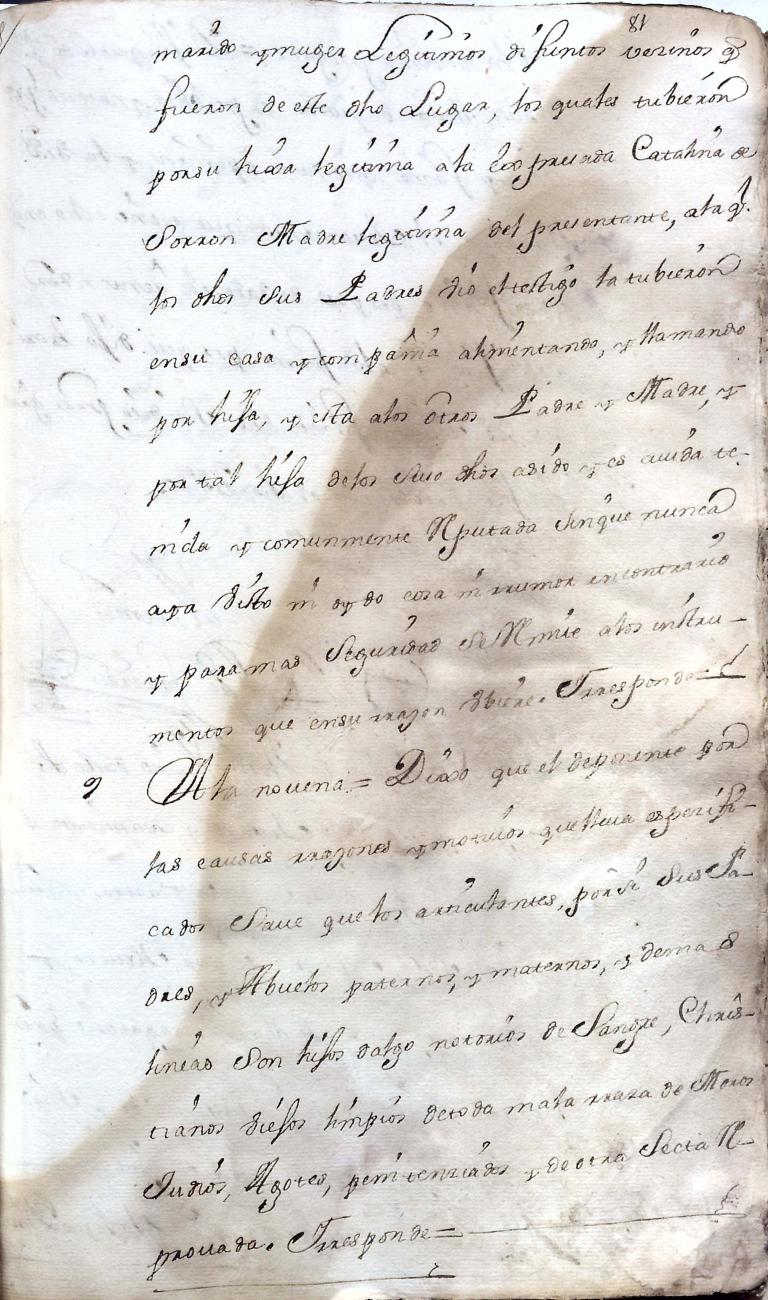 81
marido y muger Legitimos difuntos vezinos q̃
fueron de este dho Lugar, los quales tubieron
por su hixa legitima a la expresada Catalina de
Sorron Madre legitima del presentante, a la ql.
los dhos sus Padres vio el testigo la tubieron
en su casa y compañia alimentando, y llamando
por hija, y esta a los otros Padre y Madre, y
por tal hija de los suso dhos a sido y es auida te-
nida y comunmente Reputada sin que nunca
aya visto ni oydo cosa ni rrumor en contrario
y para mas Seguridad se Rmite a los instru-
mentos que en su rrazon vbiere. Y responde=
9 A la novena= Dixo que el deponente por
las causas rrazones y motiuos que lleua espezifi-
cados Saue que los articulantes, por si sus Pa-
dres, y Abuelos paternos, y maternos, y demas
lineas Son hijos dalgo notorios de Sangre, Chris-
tianos viejos limpios de toda mala rraza de Moros
Judios, Agotes, penitenziados y de otra Secta R-
prouada. Y responde=